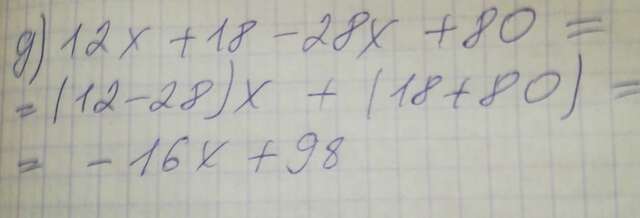 д) 12x + 18 - 28x + 80 =
= (12-28)x + (18+80) =
= - 16x + 98